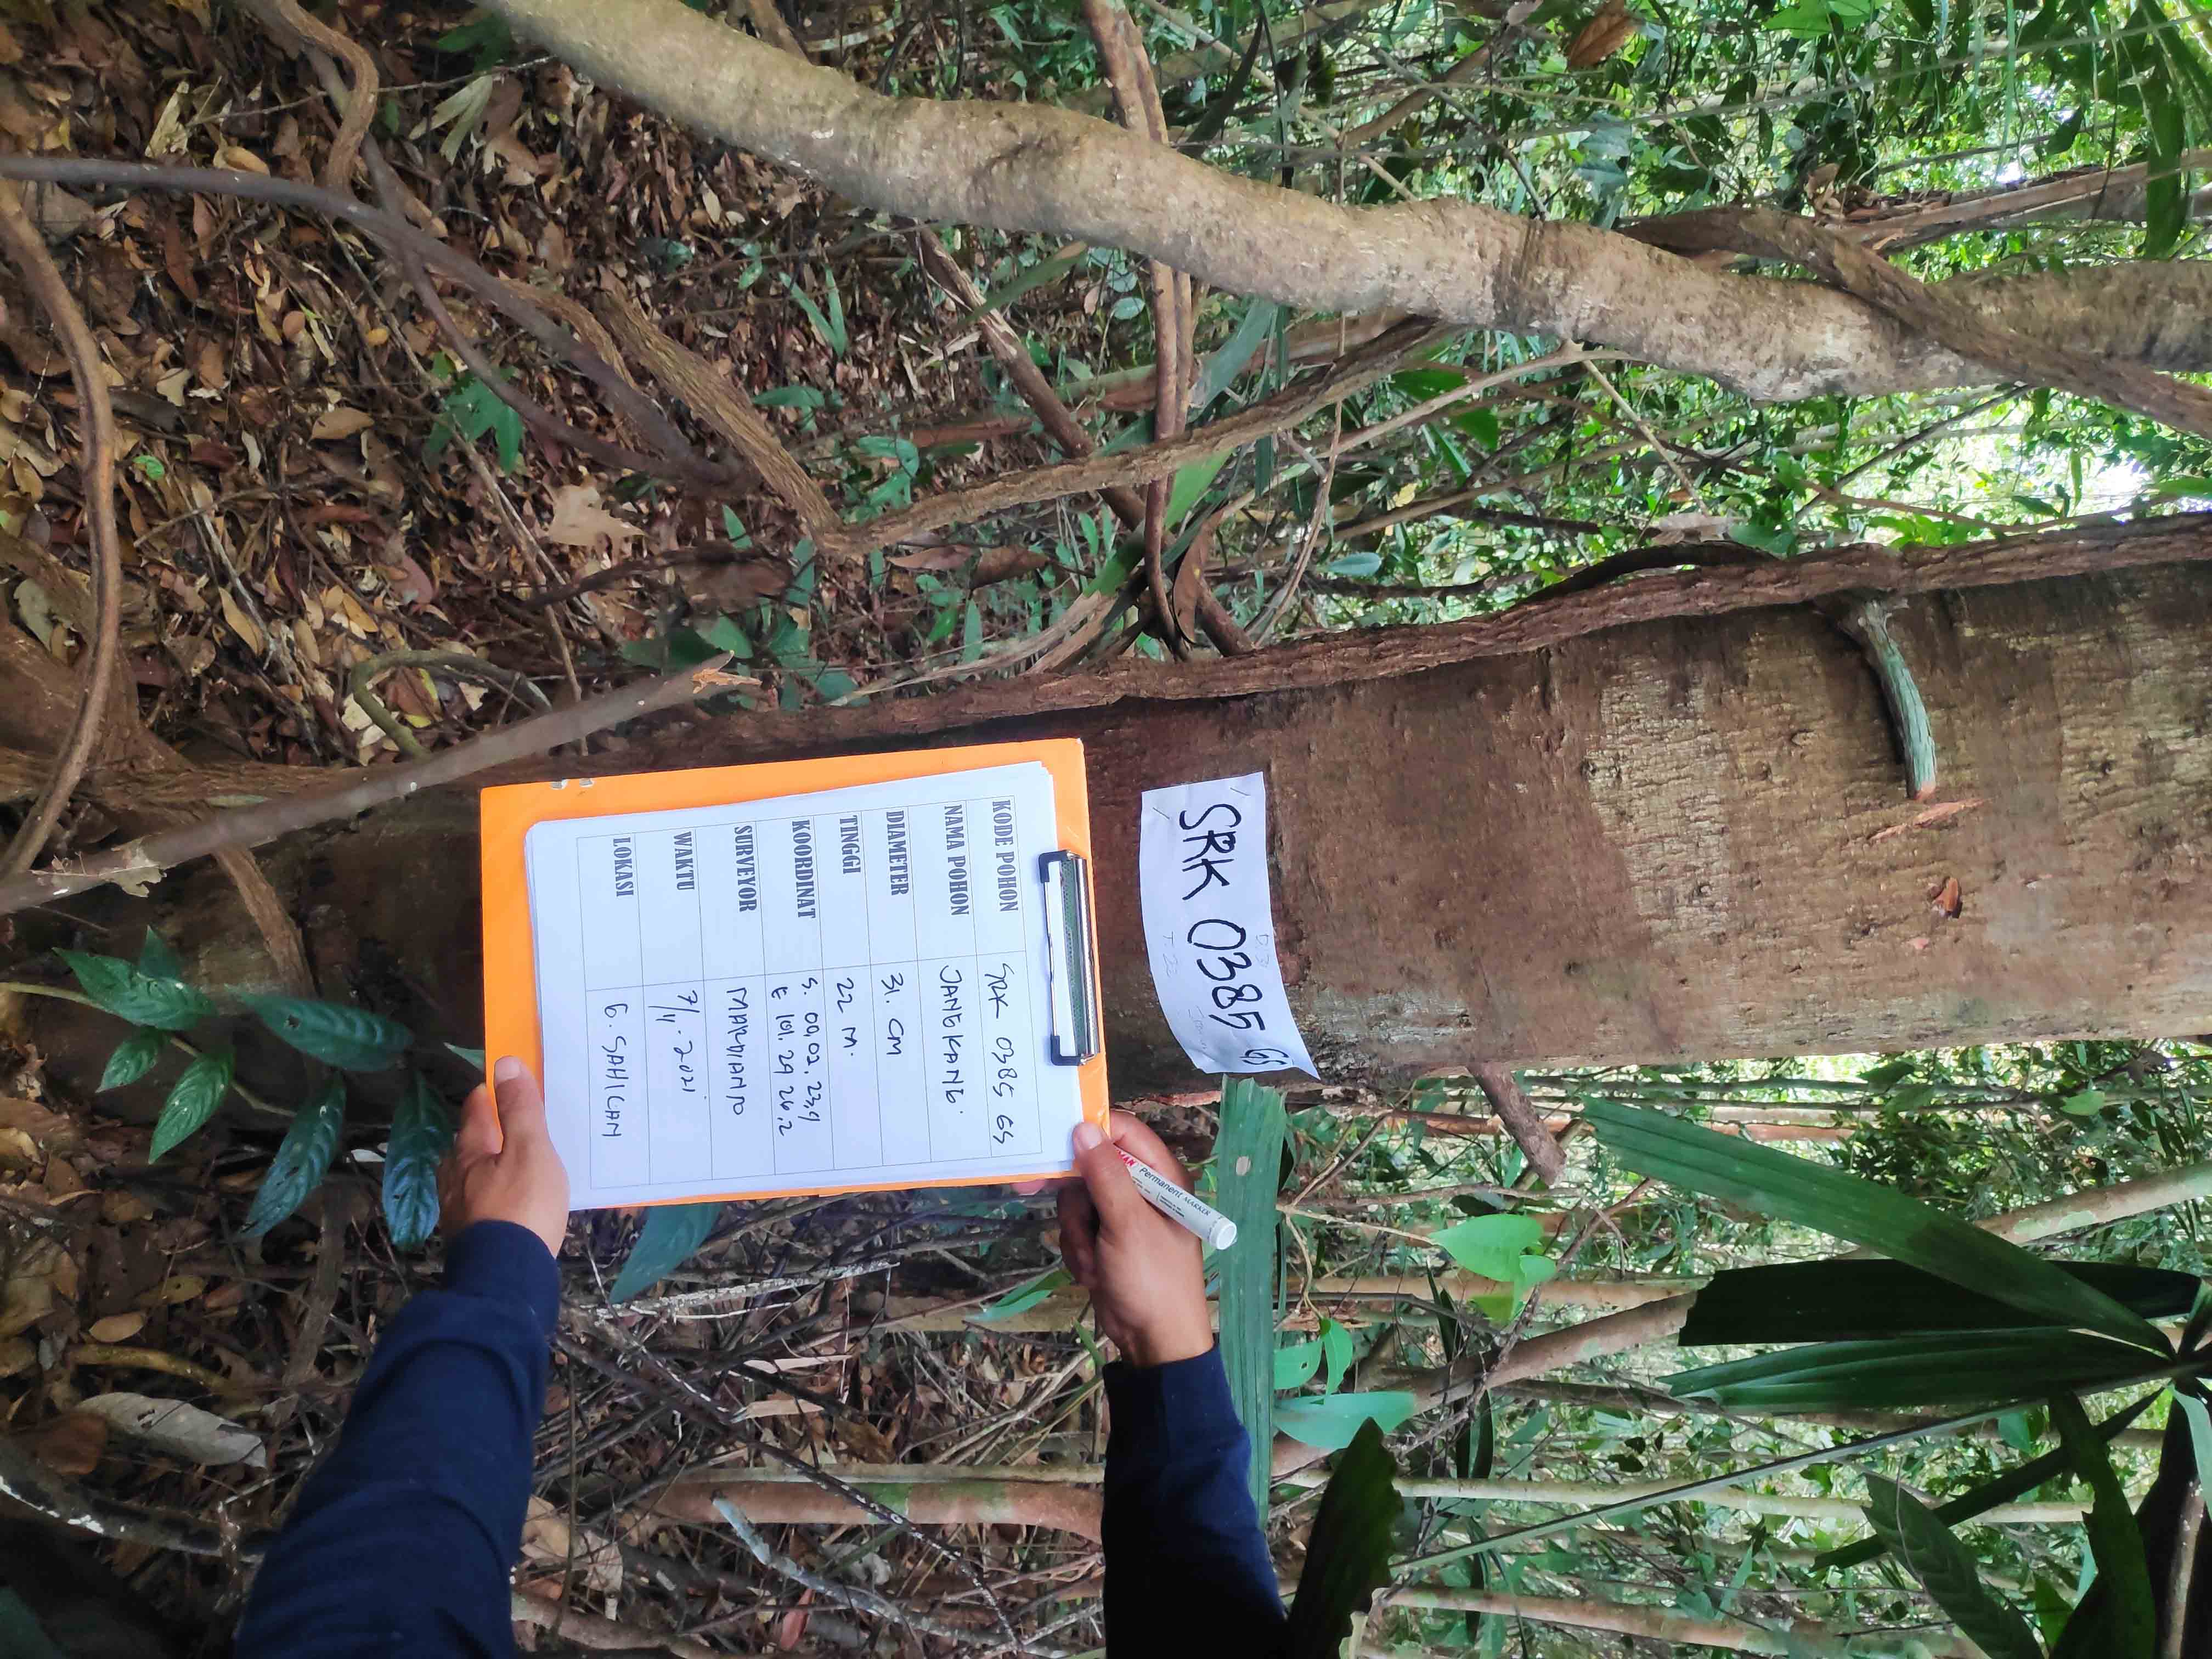 SRK 0385 GS
KODE POHON SRK 0385 GS
NAMA POHON JANGKANG.
DIAMETER 31. CM
TINGGI 22 M.
KOORDINAT S. 00,02, 23,9
E 101. 29 26,2
SURVEYOR MARDIANTO
WAKTU 7/4. 2021
LOKASI G. SAHILAN
Permanent MARKER